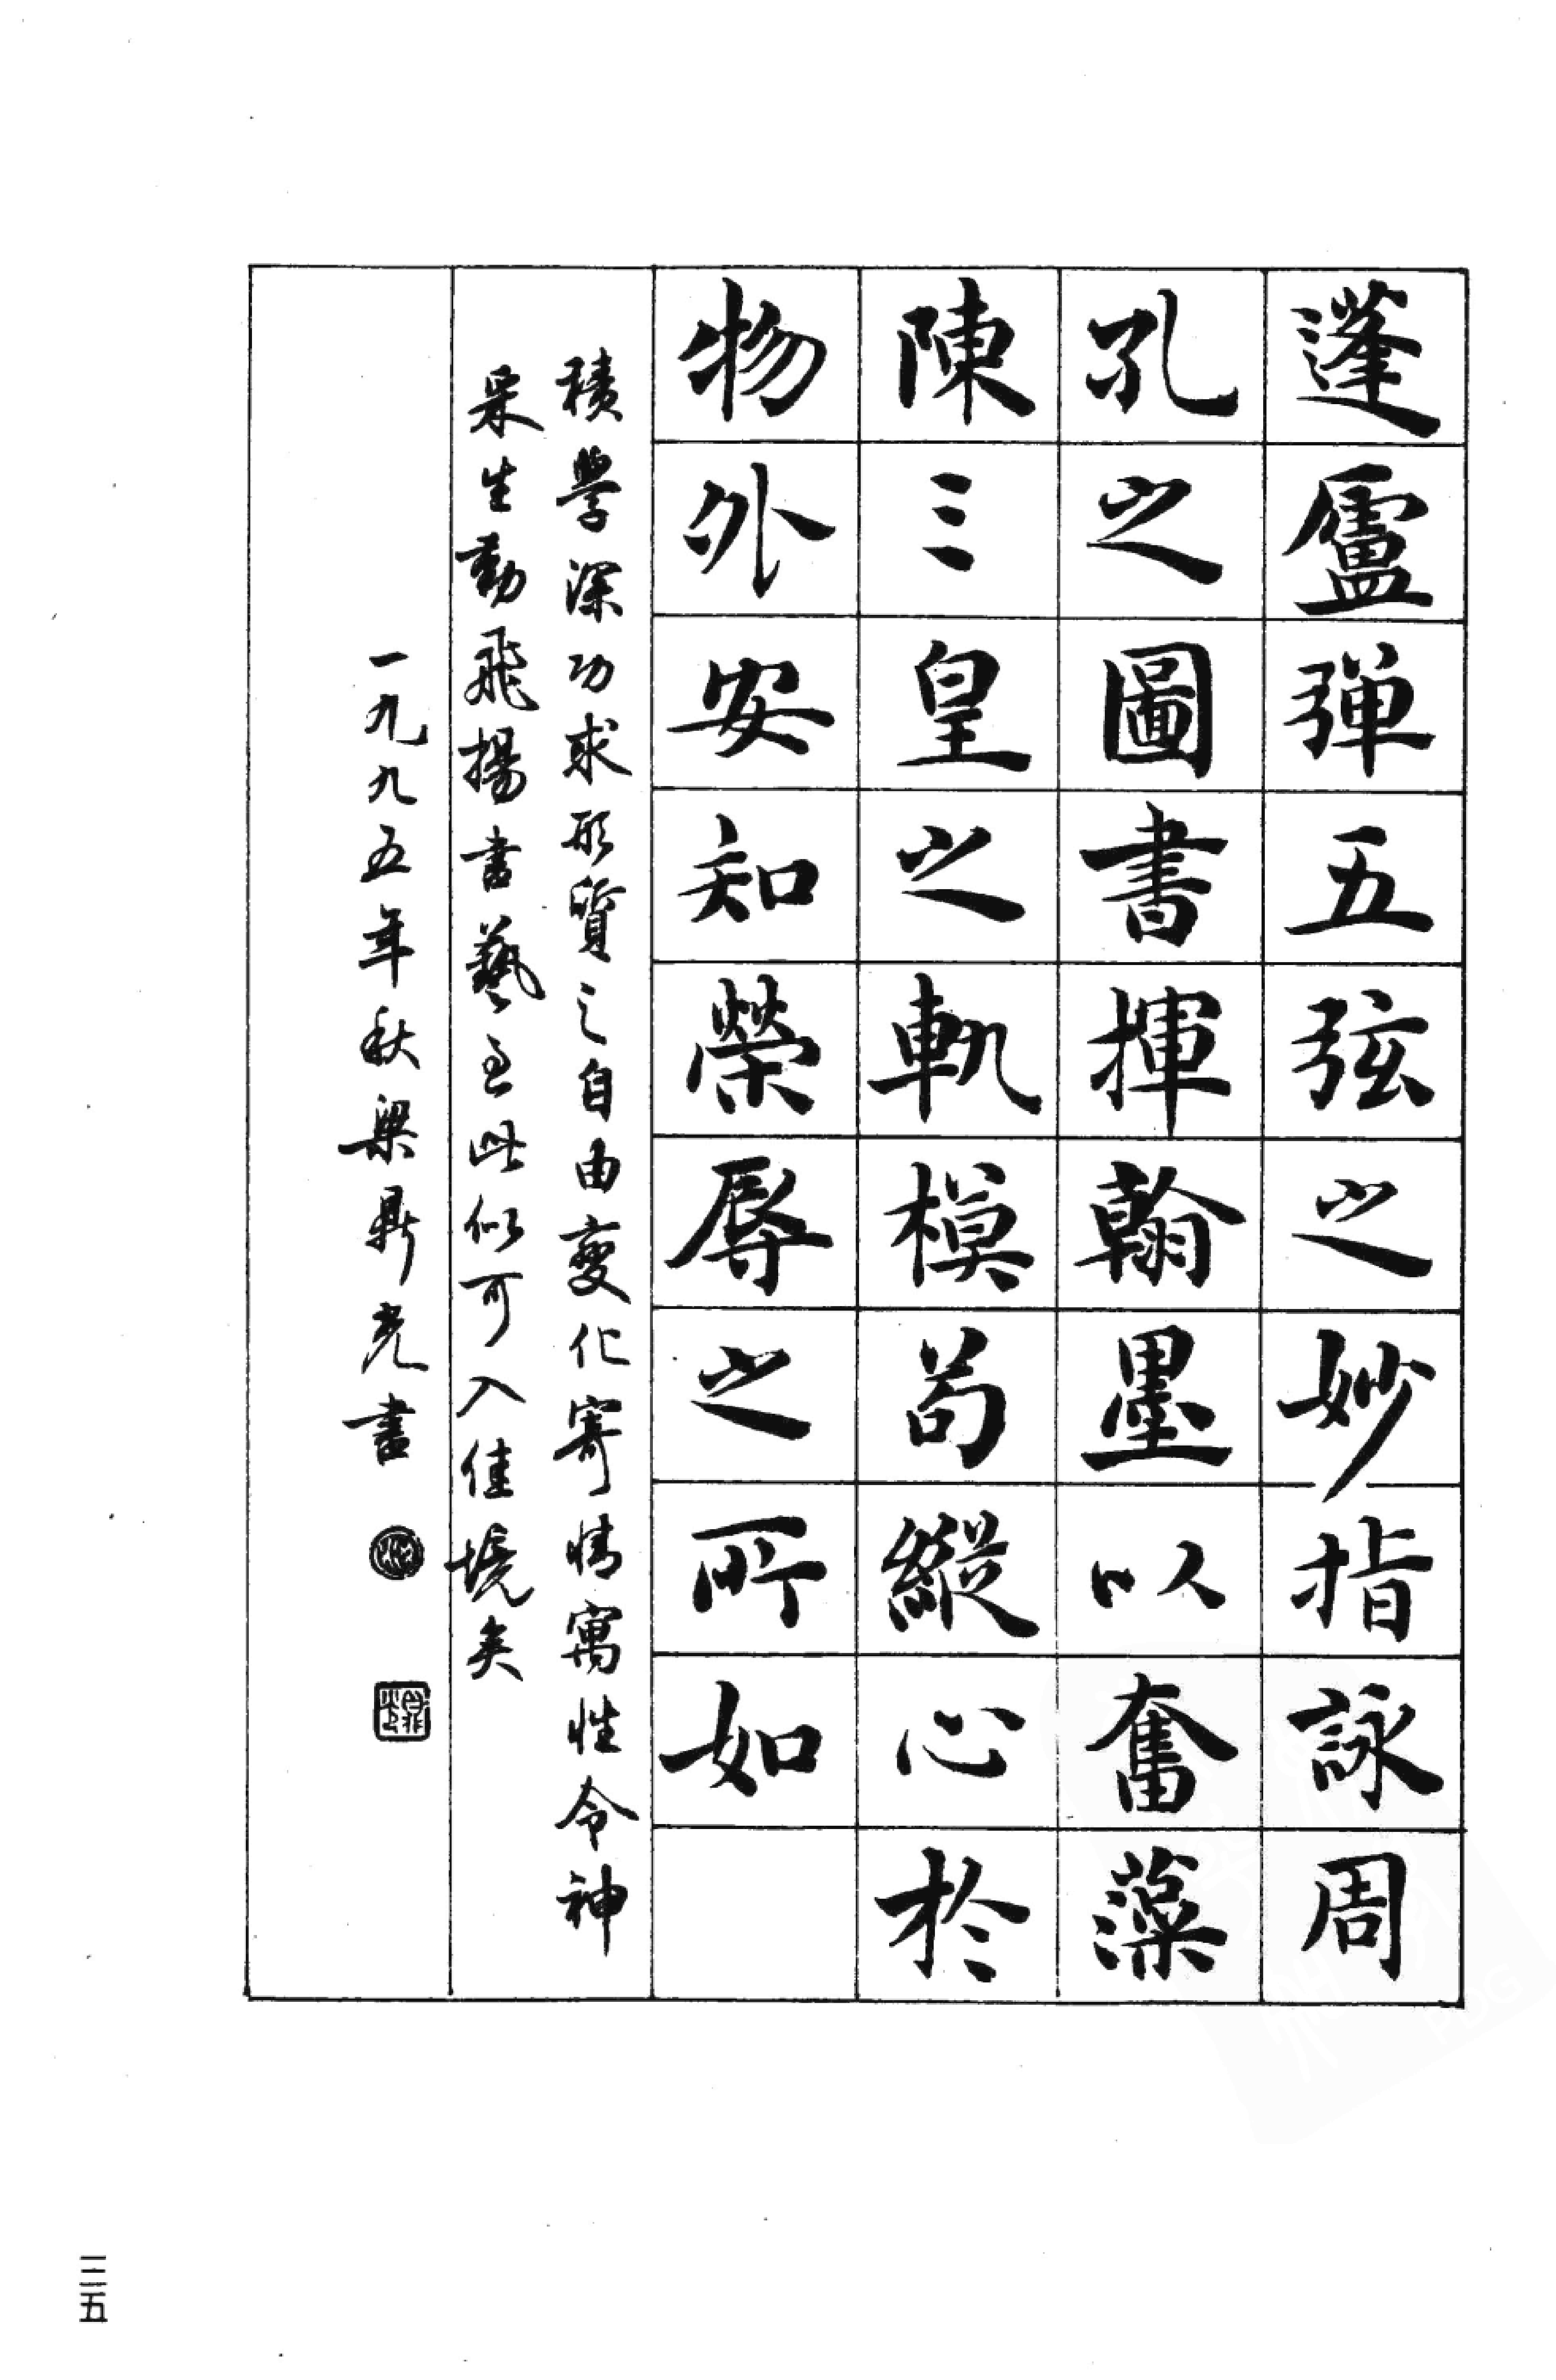 蓬廬彈五弦之妙指詠周
孔之圖書揮翰墨以奮藻
陳三皇之軌模苟縱心於
物外安知榮辱之所如
積學深功求形質之自由變化寄情寓性令神
采生動飛揚書藝至此似可入佳境矣
一九九五年秋梁鼎光書
三五